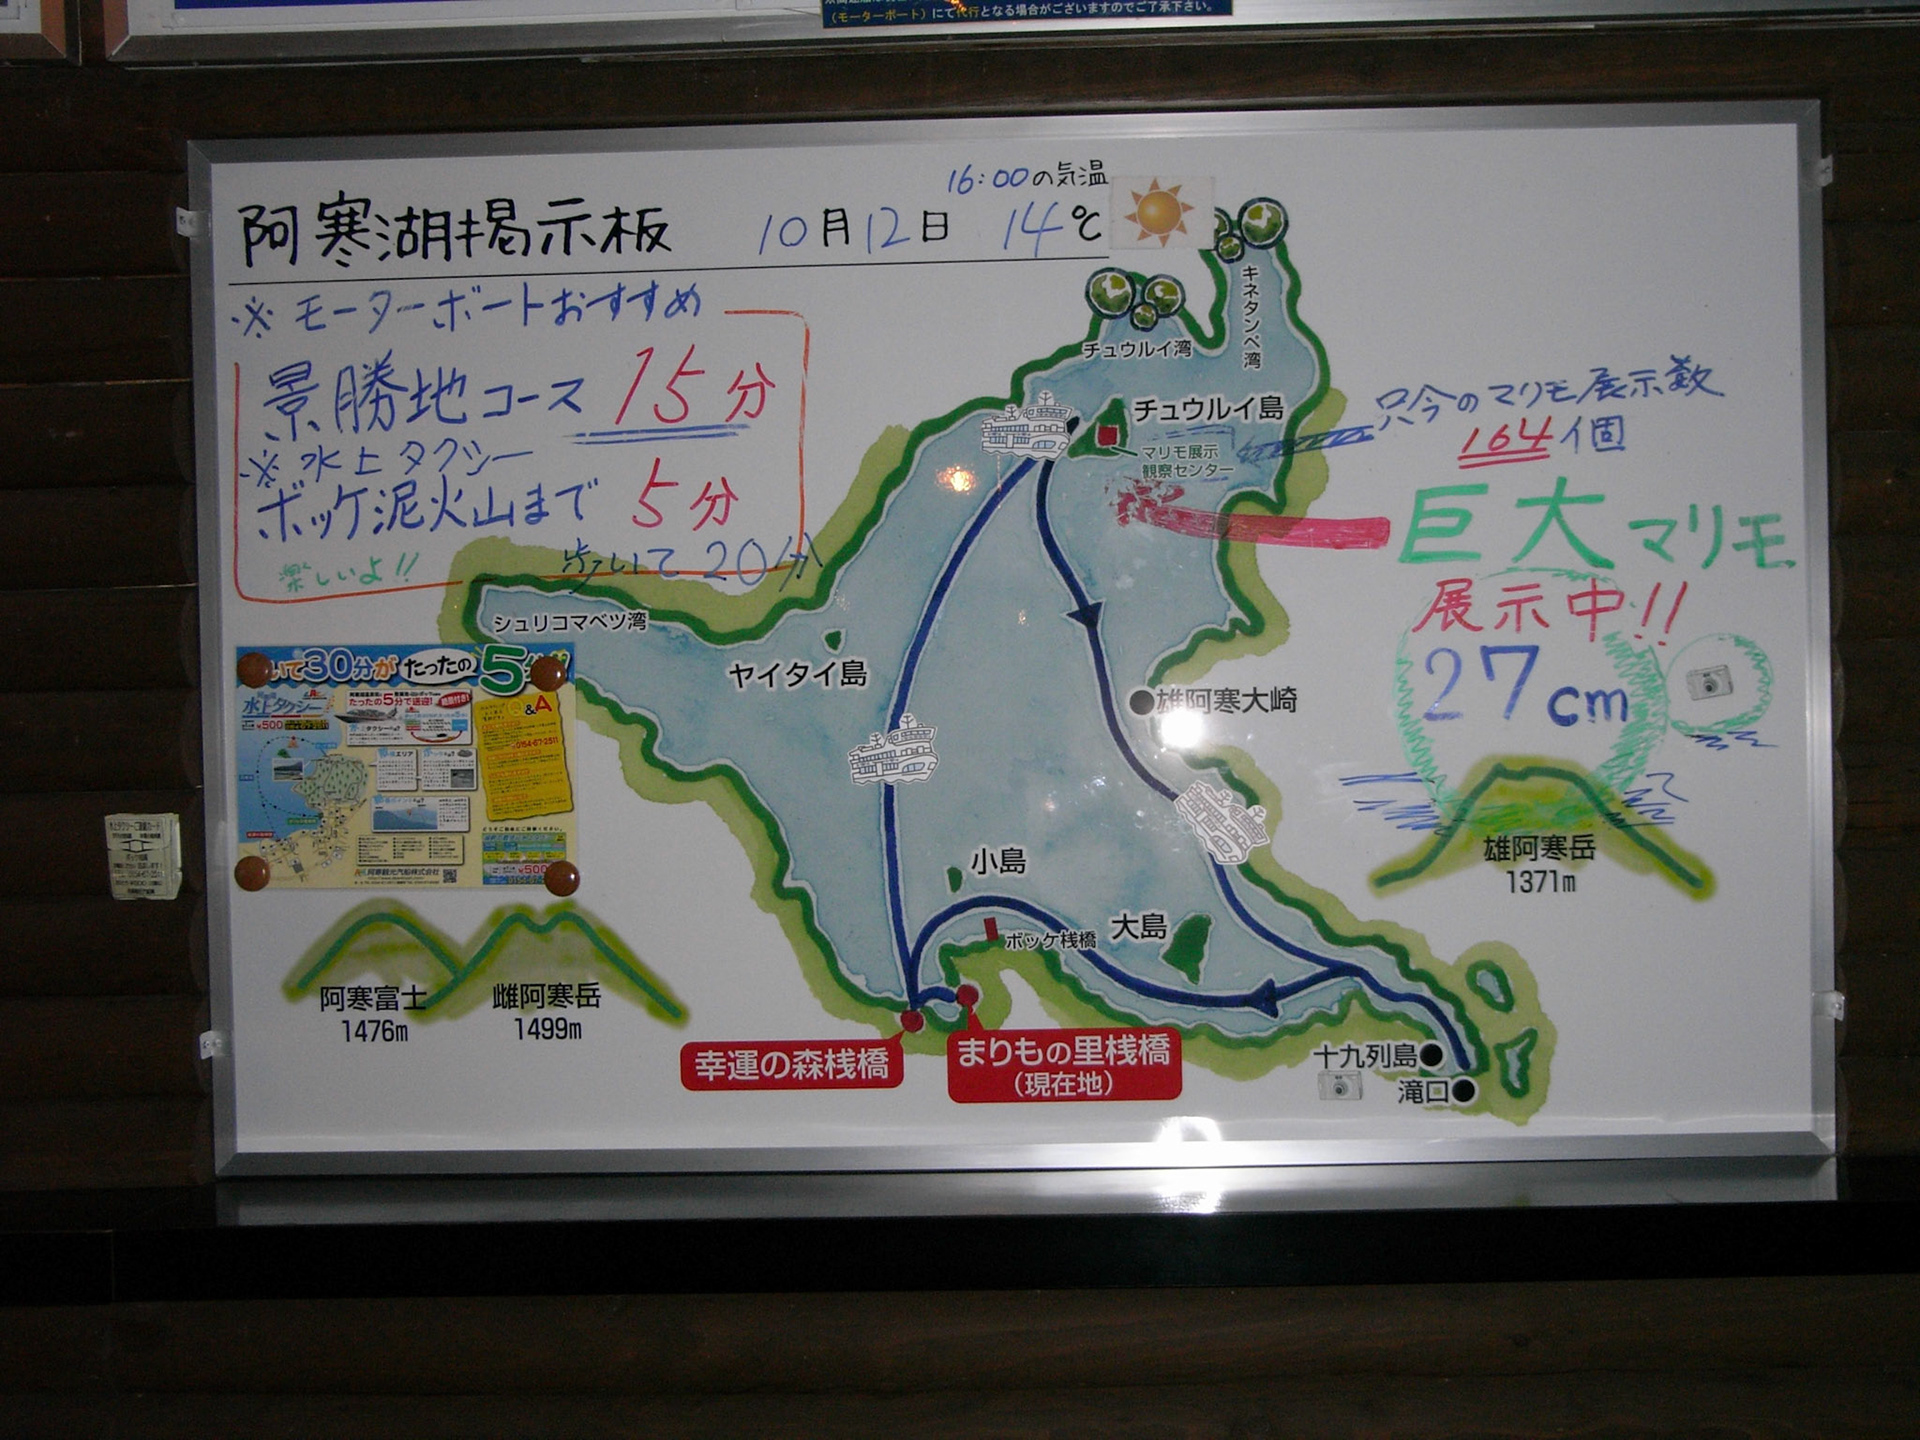 (モーターボート)にて代行となる場合がございますのでご了承下さい。
阿寒湖掲示板 10月12日 14℃
16:00の気温
※モーターボートおすすめ
景勝地コース 15分
※水上タクシー
ボッケ泥火山まで 5分
歩いて20分
楽しいよ!!
キネタンペ湾
チュウルイ湾
チュウルイ島
マリモ展示
観察センター
只今のマリモ展示数
164個
巨大マリモ
展示中!!
27cm
シュリコマベツ湾
ヤイタイ島
雄阿寒大崎
いて30分がたったの5分
水上タクシー
¥500
たったの5分で送迎!
Q&A
0154-67-2511
阿寒観光汽船株式会社
¥500
小島
ボッケ桟橋
大島
雄阿寒岳
1371m
阿寒富士
1476m
雌阿寒岳
1499m
幸運の森桟橋
まりもの里桟橋
(現在地)
十九列島
滝口